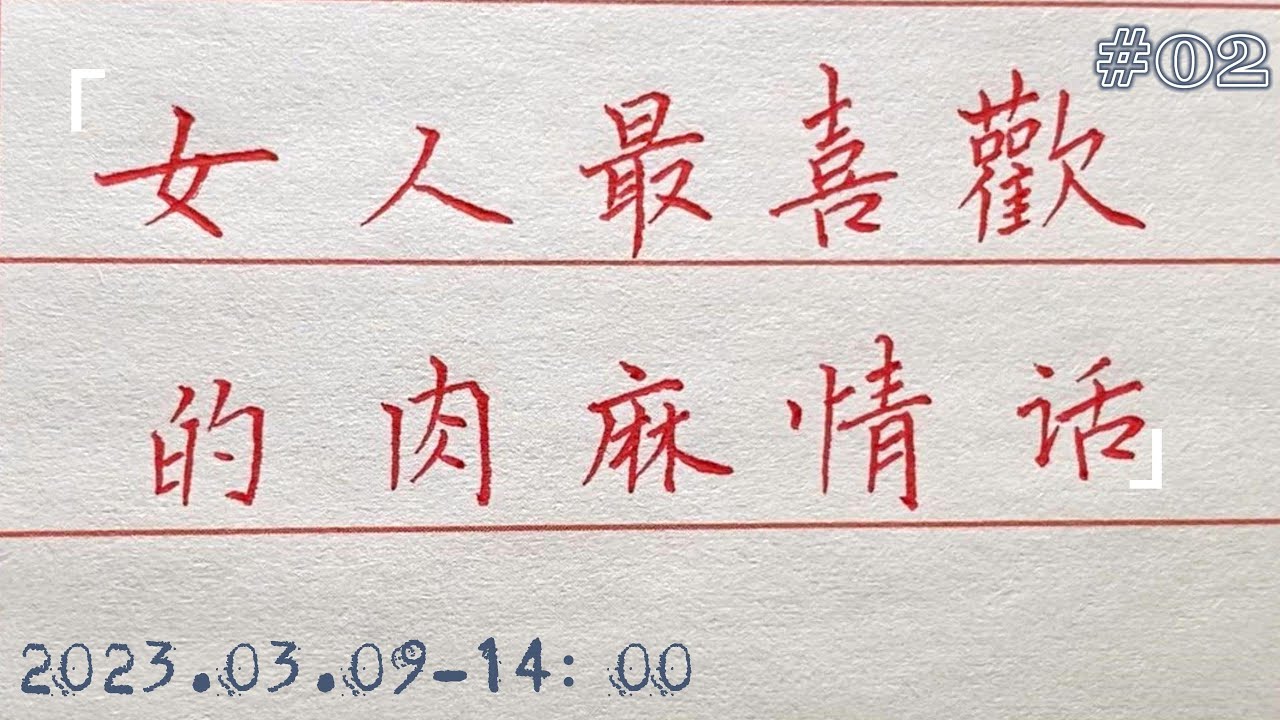 #02
「女人最喜歡
的肉麻情话」
2023.03.09-14: 00